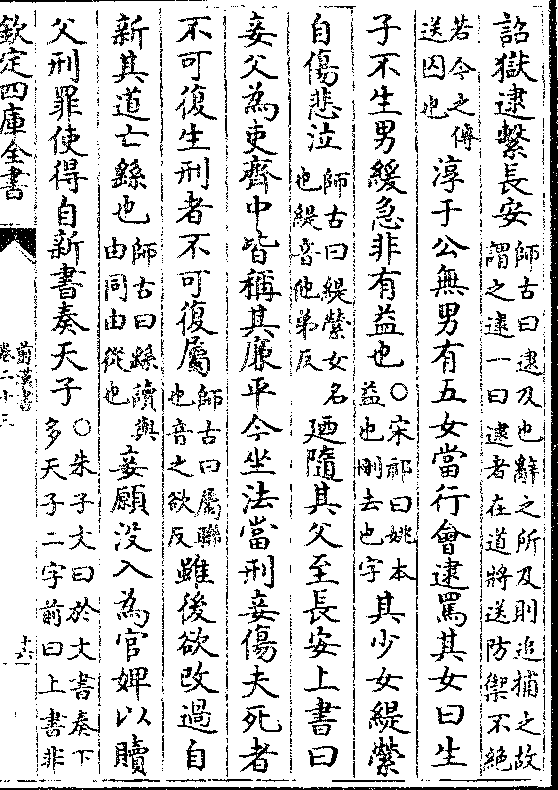 詔獄逮繫長安師古曰逮及也辭之所及則追捕之故謂之逮一曰逮者在道將送防禦不絶
若今之傳送囚也淳于公無男有五女當行㑹逮罵其女曰生
子不生男緩急非有益也○宋祁曰姚本益也刪去也字其少女緹縈
自傷悲泣師古曰緹縈女名也緹音他弟反廼隨其父至長安上書曰
妾父為吏齊中皆稱其廉平今坐法當刑妾傷夫死者
不可復生刑者不可復屬師古曰屬聯也音之欲反雖後欲改過自
新其道亡繇也師古曰繇讀與由同由從也妾願沒入為官婢以贖
父刑罪使得自新書奏天子○朱子文曰於文書奏下多天子二字前曰上書非
欽定四庫全書
前漢書
卷二十三
十六